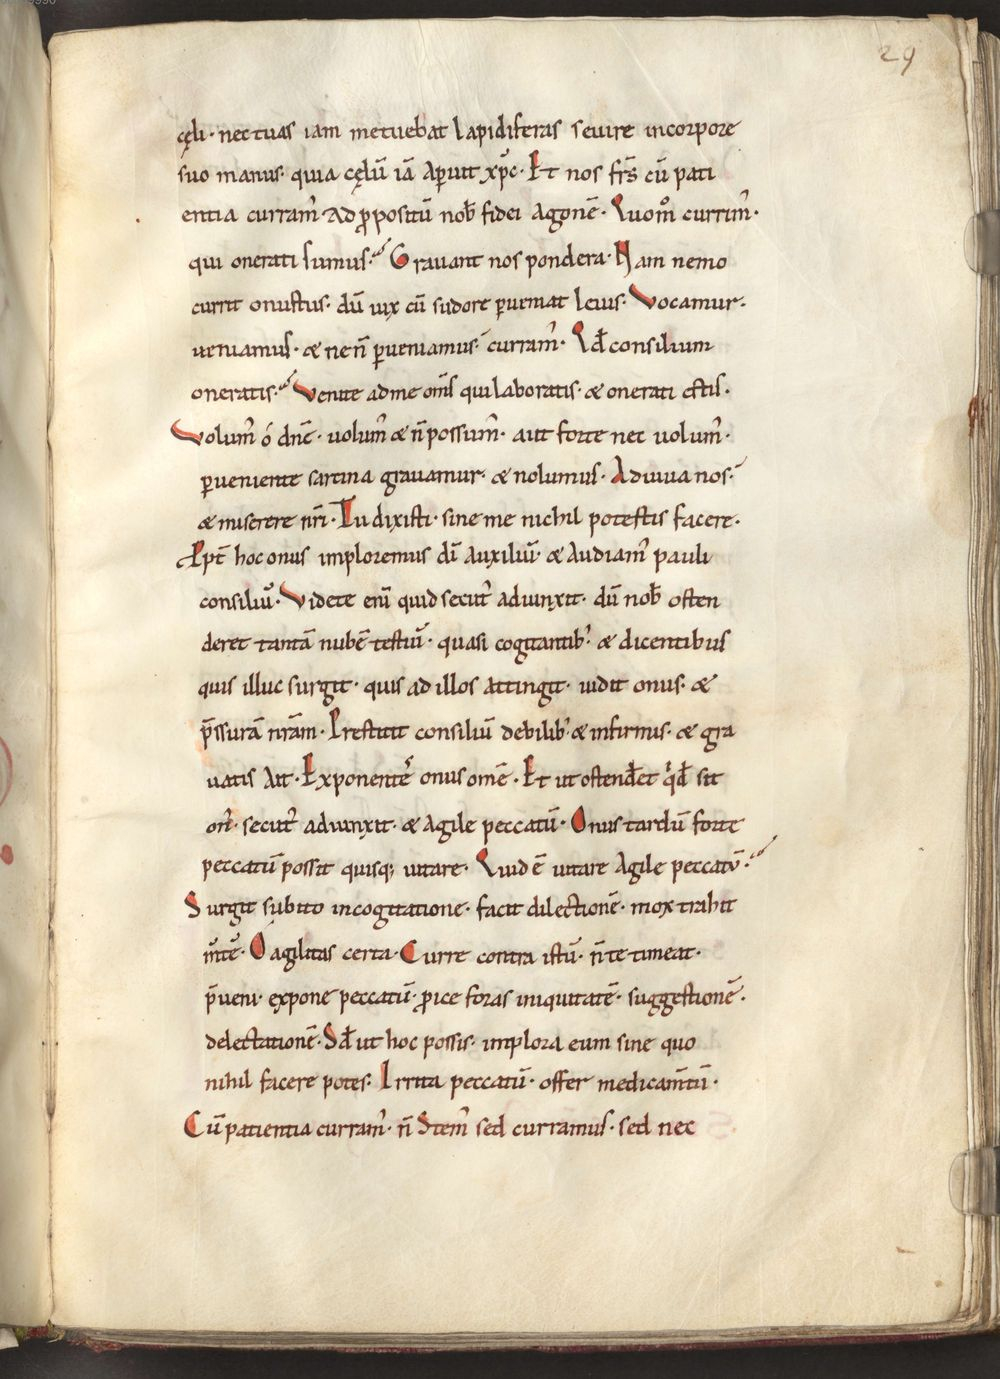 29
cęli· nec tuas iam metuebat lapidiferas seuire incorpore
suo manus· quia cęlū iā aperuit xp̄c· Et nos fr̄s cū pati
entia curram᷒· Ad ꝓpositū nob̄ fidei agonē· Quom̊ currim᷒·
qui onerati sumus· Grauant nos pondera· Nam nemo
currit onustus· dū uix cū sudore ꝑueniat leuis· Vocamur·
ueniamus· & ne n̄ ꝑueniamus· curram᷒· Qđ consilium
oneratis· Venite ad me om̄s qui laboratis· & onerati estis·
Volum᷒ ó dn̄e· uolum᷒ & n̄ possum᷒· aut forte nec uolum᷒·
ꝑueniente sarcina grauamur· & nolumus· Adiuua nos·
& miserere nr̄i· Tu dixisti· sine me nichil potestis facere·
Ꝓpt̄ hoc onus imploremus dī auxiliū· & audiam᷒ pauli
consiliū· Videte enī quid secut᷒ adiunxit· dū nob̄ osten
deret tantā nubē testiū· quasi cogitantib᷒· & dicentibus
quis illuc surgit· quis ad illos attingit· uidit onus· &
p̄ssurā nr̄am· Prestitit consiliū debilib᷒ & infirmis· & gra
uatis ait· Exponentes onus omē· Et ut ostenderet qđ sit
on᷒· secut᷒ adiunxit· & agile peccatū· Onus tardū forte
peccatū possit quisq; uitare· Quid ē uitare agile peccatū·
Surgit subito incogitatione· facit dilectionē· mox trahit
m̄tē· O agilitas certa· Curre contra istū· n̄ te timeat·
p̄ueni· expone peccatū· ꝓice foras iniquitatē· suggestionē·
delectationē· Sđ ut hoc possis· implora eum sine quo
nihil facere potes· Irrita peccatū· offer medicam̄tū·
Cū patientia curram᷒· n̄ Stem᷒ sed curramus· sed nec